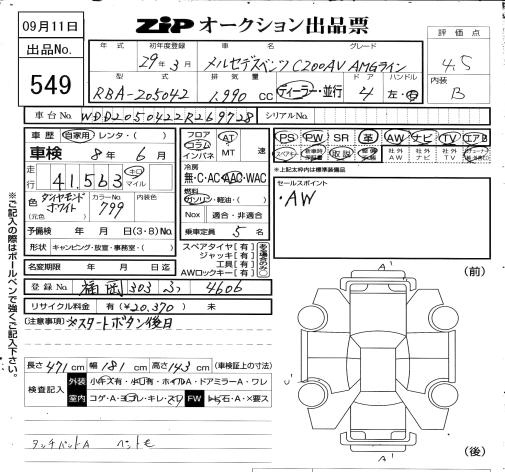 09月11日
ZiP オークション出品票
出品No.
549
年式 初年度登録 車名 グレード
29年3月 メルセデスベンツC200AV AMGライン
型式 排気量 ドア ハンドル
RBA-205042 1,990 cc ディーラー・並行 4 左・右
評価点
4.5
内装
B
車台No. WDD2050422R269728 シリアルNo.
車歴 自家用・レンタ・( )
車検 8年 6月
走行 41,563 キロ マイル
色(元色) ダイヤモンドホワイト カラーNo. 799 内装色
予備検 年 月 日(3・8)No.
形状 キャンピング・放室・事務室・( )
名変期限 年 月 日迄
登録No. 福岡 303 4606
リサイクル料金 有(¥20,370) 未
フロア コラム インパネ AT MT 速
冷房
無・C・AC・AAC・WAC
燃料
ガソリン・軽油・( )
Nox 適合・非適合
乗車定員 5 名
スペアタイヤ[有]
ジャッキ[有]
工具[有]
AWロックキー[有]
PS PW SR 革 AW ナビ TV エアB
スペアキー 取説 社外AW 社外ナビ 社外TV
※上記太枠内は標準装備品
セールスポイント
・AW
(注意事項) ※スタートボタン後日
長さ 471 cm 幅 181 cm 高さ 143 cm (車検証上の寸法)
検査記入 外装 小キズ有・小凹有・ホイルA・ドアミラーA・ワレ
室内 コゲ・A・ヨゴレ・キレ・スリ FW 石・A・×要ス
タッチペントA ヘントモ
※ご記入の際はボールペンで強くご記入下さい。
(前)
A'
U'
A'
(後)